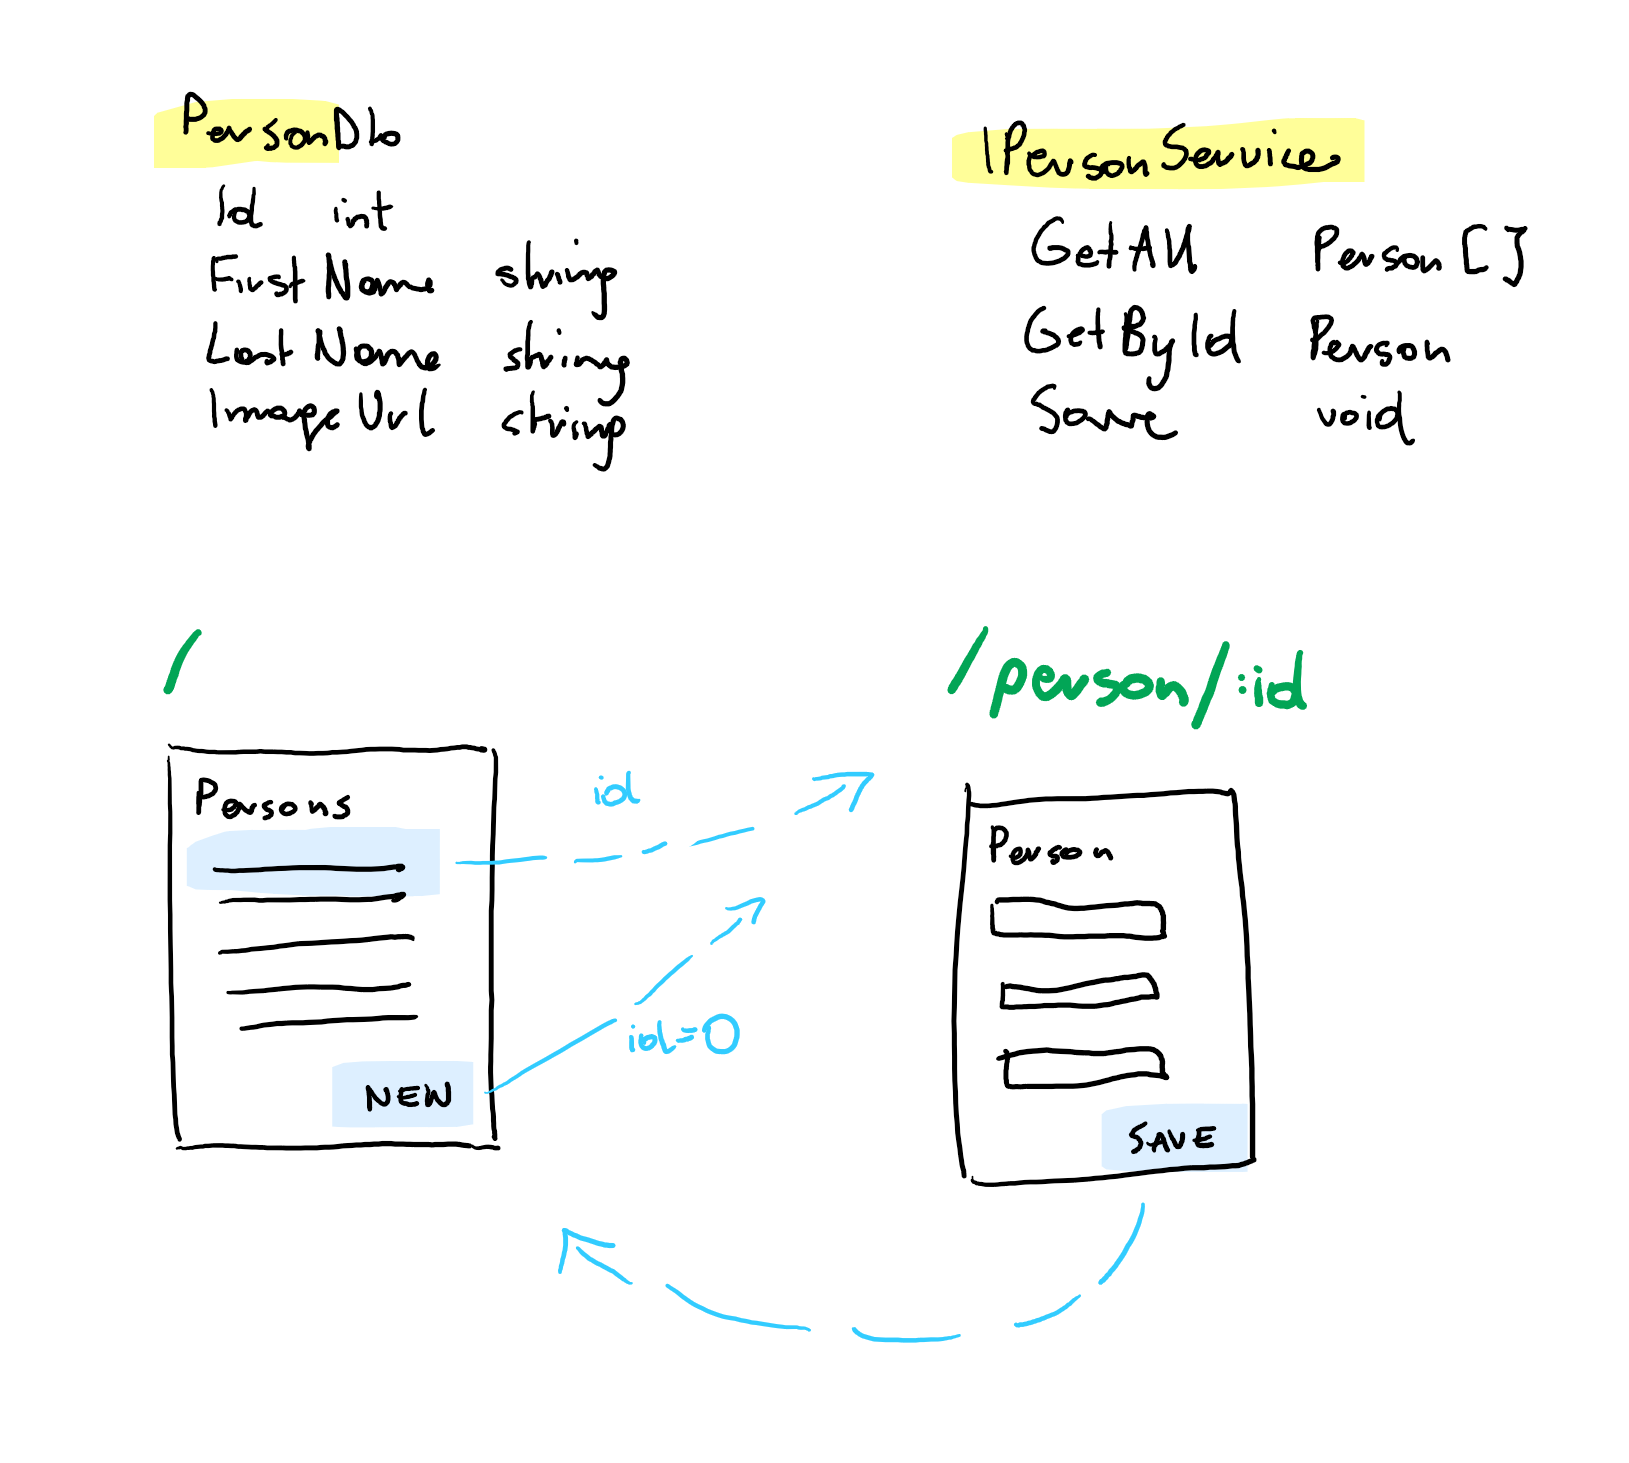 PersonDto
Id int
FirstName string
LastName string
ImageUrl string
IPersonService
GetAll Person[]
GetById Person
Save void
/
/person/:id
Persons
NEW
id
id=0
Person
SAVE